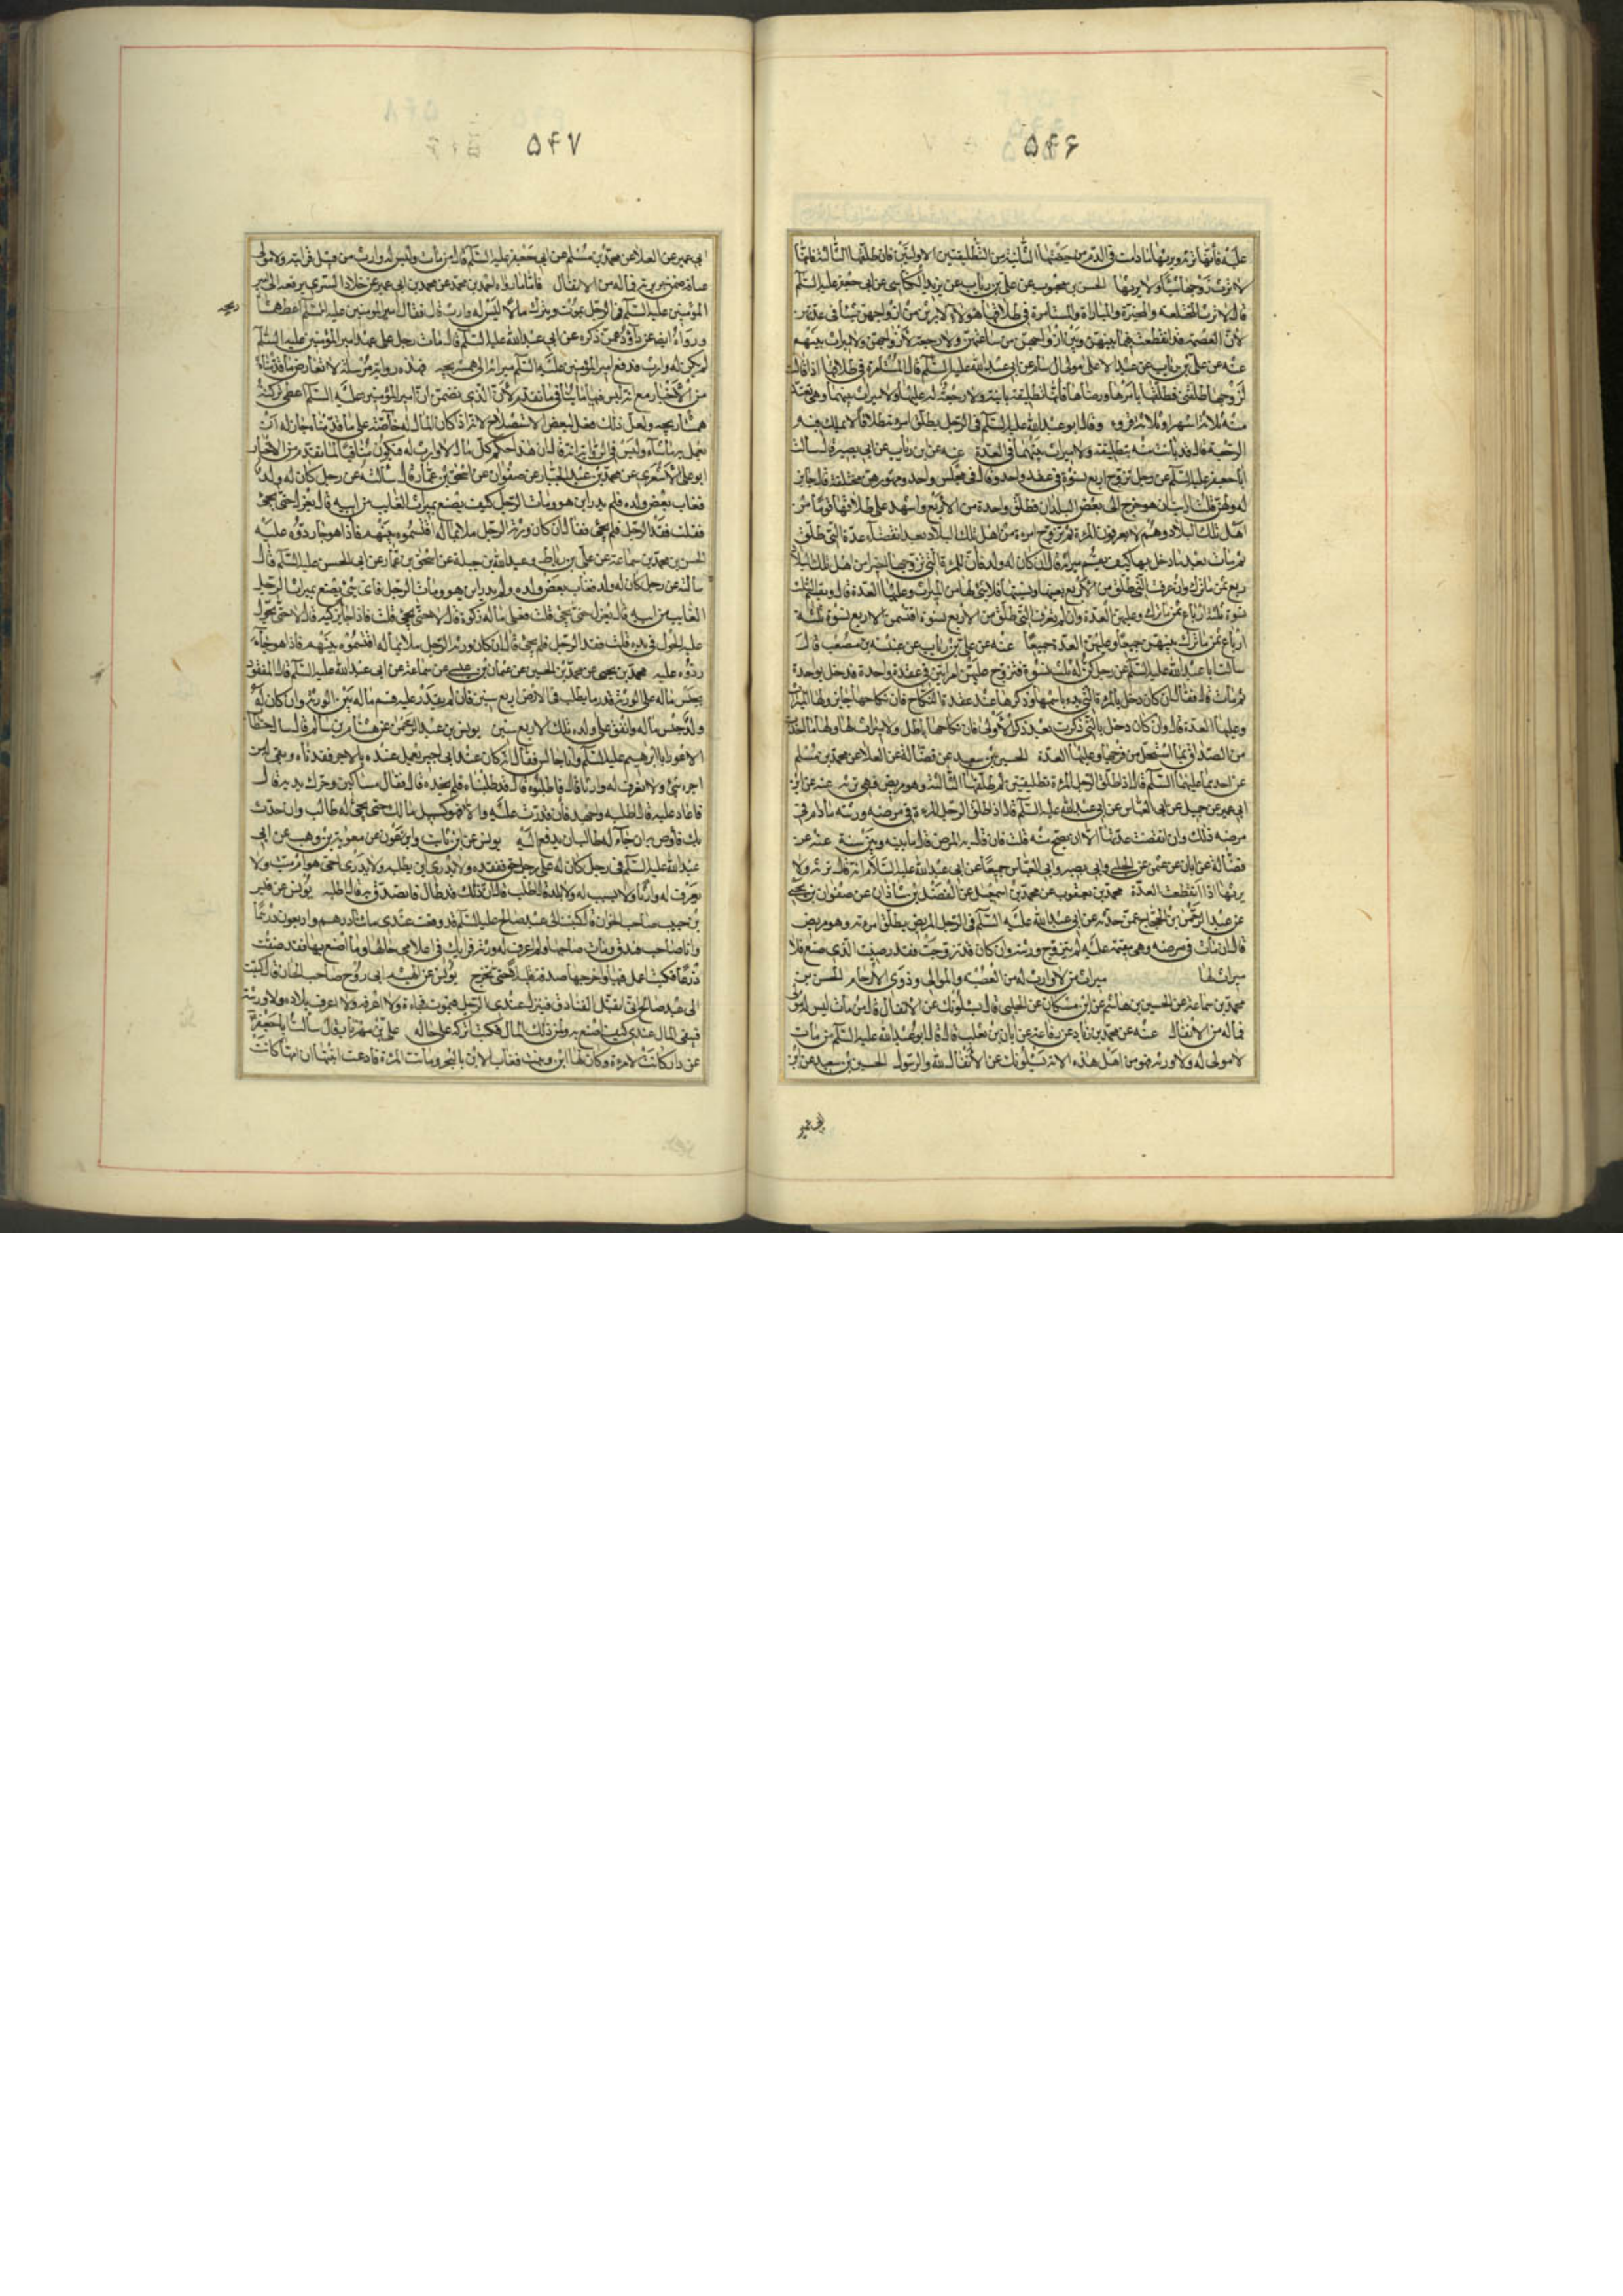 ۵۴۶
عليه فانها ترثه ويرثها ما دامت في الدم من حيضتها الثانية من التطليقتين الاولتين فان طلقها الثالثة فانها
لا ترث من زوجها شيئا ولا يرث منها الحسن بن محبوب عن علي بن رئاب عن يزيد الكناسي عن ابي جعفر عليه السلم
قال لا ترث المختلعة والمخيرة والمباراة والمستأمرة في طلاقها هؤلاء لا يرثن من ازواجهن شيئا في عدتهن
لان العصمة قد انقطعت فيما بينهن وبين ازواجهن من ساعتهن ولا رجعة لازواجهن ولا ميراث بينهم
عنه عن علي بن رئاب عن عبد الاعلى مولى ال سام عن ابي عبد الله عليه السلم قال المستأمرة في طلاقها اذا قالت
لزوجها طلقني فطلقها بامرها ورضاها فانها تطليقة باينة ولا رجعة له عليها ولا ميراث بينهما وهي تعتد
منه ثلاثة اشهر او ثلاثة قروء وقال ابو عبد الله عليه السلم في الرجل يطلق امرءته طلاقا لا يملك فيه
الرجعة قال قد بانت منه بتطليقة ولا ميراث بينهما في العدة عنه عن ابن رئاب عن ابي بصير قال سالت
ابا جعفر عليه السلم عن رجل تزوج اربع نسوة في عقد واحد وقال في مجلس واحد ومهورهن مختلفة قال جايز
له ولهن قلت ارايت ان هو خرج الى بعض البلدان فطلق واحدة من الاربع واشهد على طلاقها قوما من
اهل تلك البلاد وهم لا يعرفون المرءة ثم تزوج امرءة من اهل تلك البلاد بعد انقضاء عدة التي طلق
ثم مات بعد ما دخل بها كيف يقسم ميراثه قال ان كان له ولد فان للمرءة التي تزوجها اخيرا من اهل تلك البلاد
ربع ثمن ما ترك وان عرفت التي طلق من الاربع بعينها ونسبها فلا شئ لها من الميراث وعليها العدة قال ويقتسمن الثلث
نسوة ثلثة ارباع ثمن ما ترك وعليهن العدة وان لم تعرف التي طلق من الاربع نسوة اقتسمن الاربع نسوة ثلثة
ارباع ثمن ما ترك بينهن جميعا وعليهن العدة جميعا عنه عن علي بن رئاب عن عنبسة بن مصعب قال
سالت ابا عبد الله عليه السلم عن رجل كن له ثلث نسوة فتزوج عليهن امراتين في عقدة واحدة فدخل بواحدة
ثم مات قال فقال ان كان دخل بالمرءة التي بدء باسمها وذكرها عند عقدة النكاح فان نكاحها جايز ولها الميراث
وعليها العدة قال وان كان دخل بالتي ذكرت بعد ذكر الاولى فان نكاحها باطل ولا ميراث لها ولها ما اخذت
من الصداق بما استحل من فرجها وعليها العدة الحسين بن سعيد عن فضالة عن العلا عن محمد بن مسلم
عن احدهما عليهما السلم قال اذا طلق الرجل المرءة تطليقتين ثم طلقها الثالثة وهو مريض فهي ترثه عنه عن ابن
ابي عمير عن جميل عن ابي العباس عن ابي عبد الله عليه السلم قال اذا طلق الرجل المرءة في مرضه ورثته ما دام في
مرضه ذلك وان انقضت عدتها الا ان يصح منه قلت فان طال به المرض قال ما بينه وبين سنة عنه عن
فضالة عن ابان عن عثمن عن الحلبي وابي بصير وابي العباس جميعا عن ابي عبد الله عليه السلام انه قال ترثه ولا
يرثها اذا انقطعت العدة محمد بن يعقوب عن محمد بن اسمعيل عن الفضل بن شاذان عن صفوان بن يحيى
عن عبد الرحمن بن الحجاج عمن حدثه عن ابي عبد الله عليه السلم في الرجل المريض يطلق امرءته وهو مريض
قال ان مات في مرضه وهي مقيمة عليه لم يتزوج ورثته وان كان قد تزوجت فقد رضيت الذي صنع فلا
ميراث لها ميراث من لا وارث له من العصبة والموالي وذوي الارحام الحسن بن
محمد بن سماعة عن الحسين بن هاشم عن ابن مسكان عن الحلبي قال يسئلونك عن الانفال قال من مات ليس له مولى
فماله من الانفال عنه عن محمد بن زياد عن رفاعة عن ابان بن تغلب قال قال ابو عبد الله عليه السلم من مات
لا مولى له ولا ورثة فهو من اهل هذه الاية يسئلونك عن الانفال قل الانفال لله والرسول الحسين بن سعيد عن ابن
ابي عمير
۵۴۷
ابي عمير عن العلا عن محمد بن مسلم عن ابي جعفر عليه السلم قال من مات وليس له وارث من قبل قرابته ولا مولى
عتاقه ضمن جريرته فماله من الانفال فاما ما رواه احمد بن محمد عن محمد بن ابي عمير عن خلاد السري يرفعه الى امير
المؤمنين عليه السلم في الرجل يموت ويترك مالا ليس له وارث قال فقال امير المؤمنين عليه السلم اعط همشا
ريجه
وروا ايضا عن داود عمن ذكره عن ابي عبد الله عليه السلم قال مات رجل على عهد امير المؤمنين عليه السلم
لم يكن له وارث فدفع امير المؤمنين عليه السلم ميراثه الى همشريجه فهذه رواية مرسلة لا تعارض ما قدمناه
من الاخبار مع انه ليس فيها ما ينافي ما تقدم لان الذي تضمن ان امير المؤمنين عليه السلم اعطى تركته
همشاريجه ولعل ذلك فعل لبعض الاستصلاح لانه اذا كان المال له خاصة على ما قدمناه جاز له ان
يعمل به ما شاء وليس في الرواية انه قال ان هذا حكم كل مال لا وارث له فيكون منافيا لما تقدم من الاخبار
ابو علي الاشعري عن محمد بن عبد الجبار عن صفوان عن اسحق بن عمار قال سالته عن رجل كان له ولد
فغاب بعض ولده فلم يدر اين هو ومات الرجل كيف يصنع بميراث الغايب من ابيه قال يعزل حتى يجئ
فقلت فقد الرجل فلم يجئ فقال ان كان ورثة الرجل ملاء بماله اقتسموه بينهم فاذا هو جاء ردوه عليه
الحسن بن محمد بن سماعة عن علي بن رباط وعبد الله بن جبلة عن اسحق بن عمار عن ابي الحسن عليه السلم قال
سالته عن رجل كان له ولد فغاب بعض ولده ولم يدر اين هو ومات الرجل فاي شئ يصنع بميراث الرجل
الغايب من ابيه قال يعزل حتى يجئ قلت فعلى ماله زكوة قال لا حتى يجئ قلت فاذا جاء يزكيه قال لا حتى يحول
عليه الحول في يده قلت فقد الرجل فلم يجئ قال ان كان ورثة الرجل ملاء بماله اقتسموه بينهم فاذا هو جاء
ردوه عليه محمد بن يحيى عن محمد بن الحسين عن عثمان بن عيسى عن سماعة عن ابي عبد الله عليه السلم قال المفقود
يحبس ماله على الورثة قدر ما يطلب في الارض اربع سنين فان لم يقدر عليه قسم ماله بين الورثة وان كان له
ولد حبس ماله وانفق على ولده تلك الاربع سنين يونس بن عبد الرحمن عن هشام بن سالم قال سال خطاب
الاعور ابا ابرهيم عليه السلم وانا جالس فقال انه كان عند ابي اجير يعمل عنده بالاجر ففقدناه وبقي له من
اجره شئ ولا نعرف له وارثا قال فاطلبوه قال قد طلبناه فلم نجده قال فقال مساكين وحرك يديه قال
فاعاد عليه قال اطلبه واجهد فان قدرت عليه والا فهو كسبيل مالك حتى يجئ له طالب وان حدث
بك فاوص به ان جاء له طالب ان يدفع اليه يونس عن ابن ثابت وابن عون عن معوية بن وهب عن ابي
عبد الله عليه السلم في رجل كان له على رجل حق ففقده ولا يدري اين يطلبه ولا يدري احي هو ام ميت ولا
يعرف له وارثا ولا نسب له ولا بلدا قال اطلب قال ان ذلك قد طال فاتصدق به قال اطلبه يونس عن فيض
بن حبيب صاحب الخان قال كتبت الى عبد صالح عليه السلم قد وقعت عندي مائتا درهم واربعون درهما
وانا صاحب فندق ومات صاحبها ولم اعرف له ورثة فرايك في اعلامي حالها وما اصنع بها فقد ضقت
ذرعا فكتب اعمل فيها واخرجها صدقة قليلا حتى تخرج يونس عن الهيثم ابي روح صاحب الخان قال كتبت
الى عبد صالح اني اتقبل الفنادق فينزل عندي الرجل فيموت فجاءة ولا اعرفه ولا اعرف بلاده ولا ورثته
فيبقى المال عندي كيف اصنع به ولمن ذلك المال فكتب اتركه على حاله علي بن مهزيار قال سالت ابا جعفر
عن دار كانت لامرءة وكان لها ابن وبنت فغاب الابن بالبحر وماتت المرءة فادعت ابنتها ان امها كانت